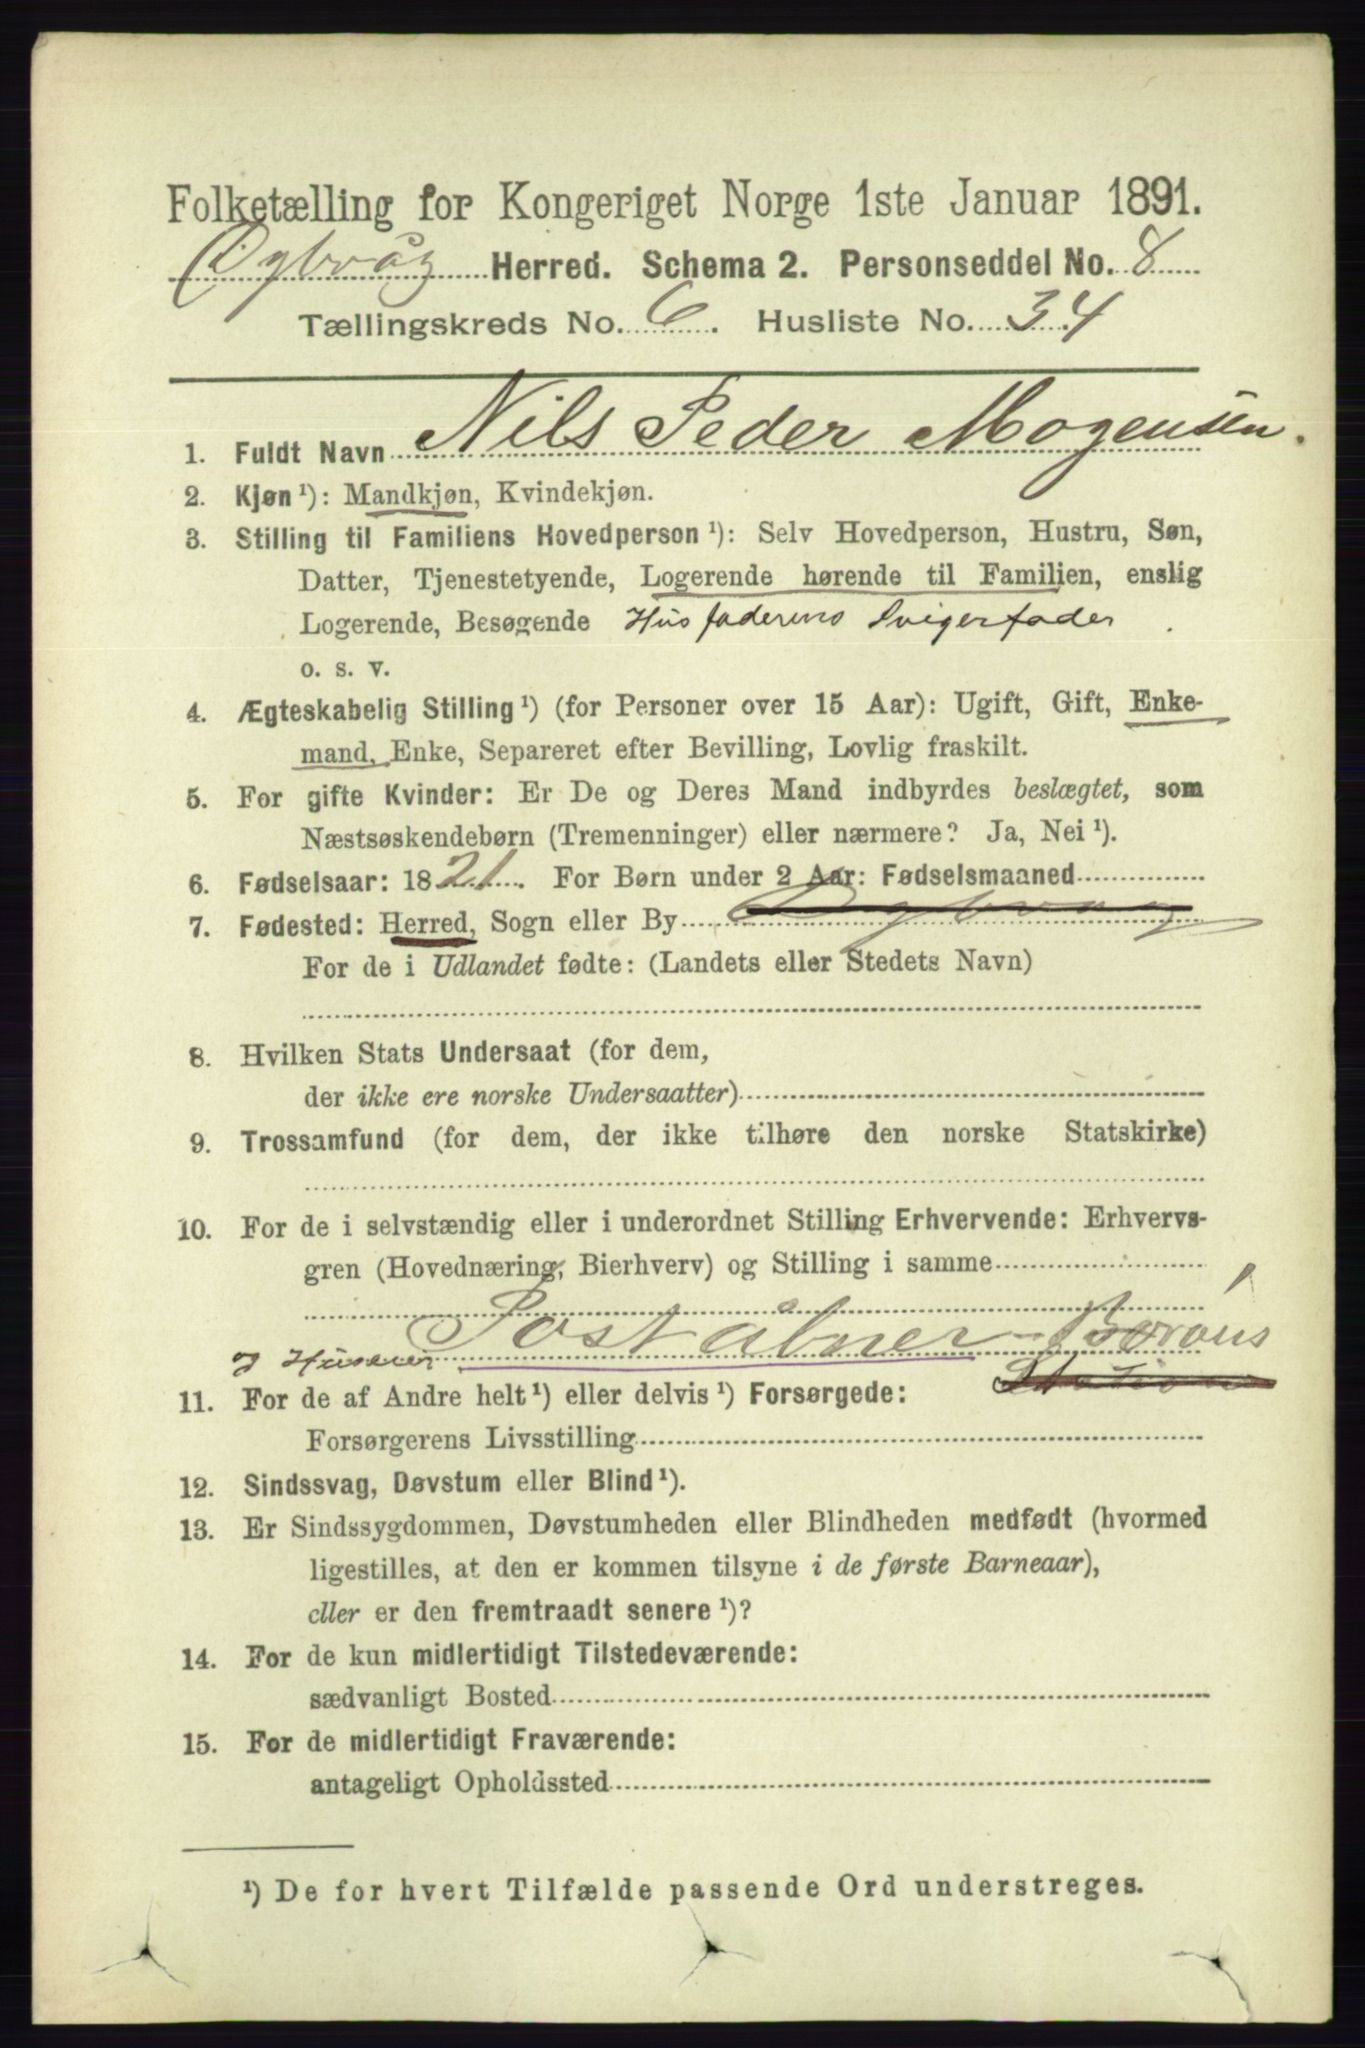 Folketælling for Kongeriget Norge 1ste Januar 1891.
Dybvåg Herred. Schema 2. Personseddel No. 8
Tællingskreds No. 6. Husliste No. 34
1. Fuldt Navn Nils Peder Mogensen.
2. Kjøn ¹): Mandkjøn, Kvindekjøn.
3. Stilling til Familiens Hovedperson ¹): Selv Hovedperson, Hustru, Søn,
Datter, Tjenestetyende, Logerende hørende til Familien, enslig
Logerende, Besøgende Husfaderens Svigerfader
o. s. v.
4. Ægteskabelig Stilling ¹) (for Personer over 15 Aar): Ugift, Gift, Enke-
mand, Enke, Separeret efter Bevilling, Lovlig fraskilt.
5. For gifte Kvinder: Er De og Deres Mand indbyrdes beslægtet, som
Næstsøskendebørn (Tremenninger) eller nærmere? Ja, Nei ¹).
6. Fødselsaar: 1821. For Børn under 2 Aar: Fødselsmaaned
7. Fødested: Herred, Sogn eller By Dybvaag
For de i Udlandet fødte: (Landets eller Stedets Navn)
8. Hvilken Stats Undersaat (for dem,
der ikke ere norske Undersaatter)
9. Trossamfund (for dem, der ikke tilhøre den norske Statskirke)
10. For de i selvstændig eller i underordnet Stilling Erhvervende: Erhvervs-
gren (Hovednæring, Bierhverv) og Stilling i samme
Poståbner - Borøns
og Huseier Station
11. For de af Andre helt ¹) eller delvis ¹) Forsørgede:
Forsørgerens Livsstilling
12. Sindssvag, Døvstum eller Blind ¹).
13. Er Sindssygdommen, Døvstumheden eller Blindheden medfødt (hvormed
ligestilles, at den er kommen tilsyne i de første Barneaar),
eller er den fremtraadt senere ¹)?
14. For de kun midlertidigt Tilstedeværende:
sædvanligt Bosted
15. For de midlertidigt Fraværende:
antageligt Opholdssted
¹) De for hvert Tilfælde passende Ord understreges.